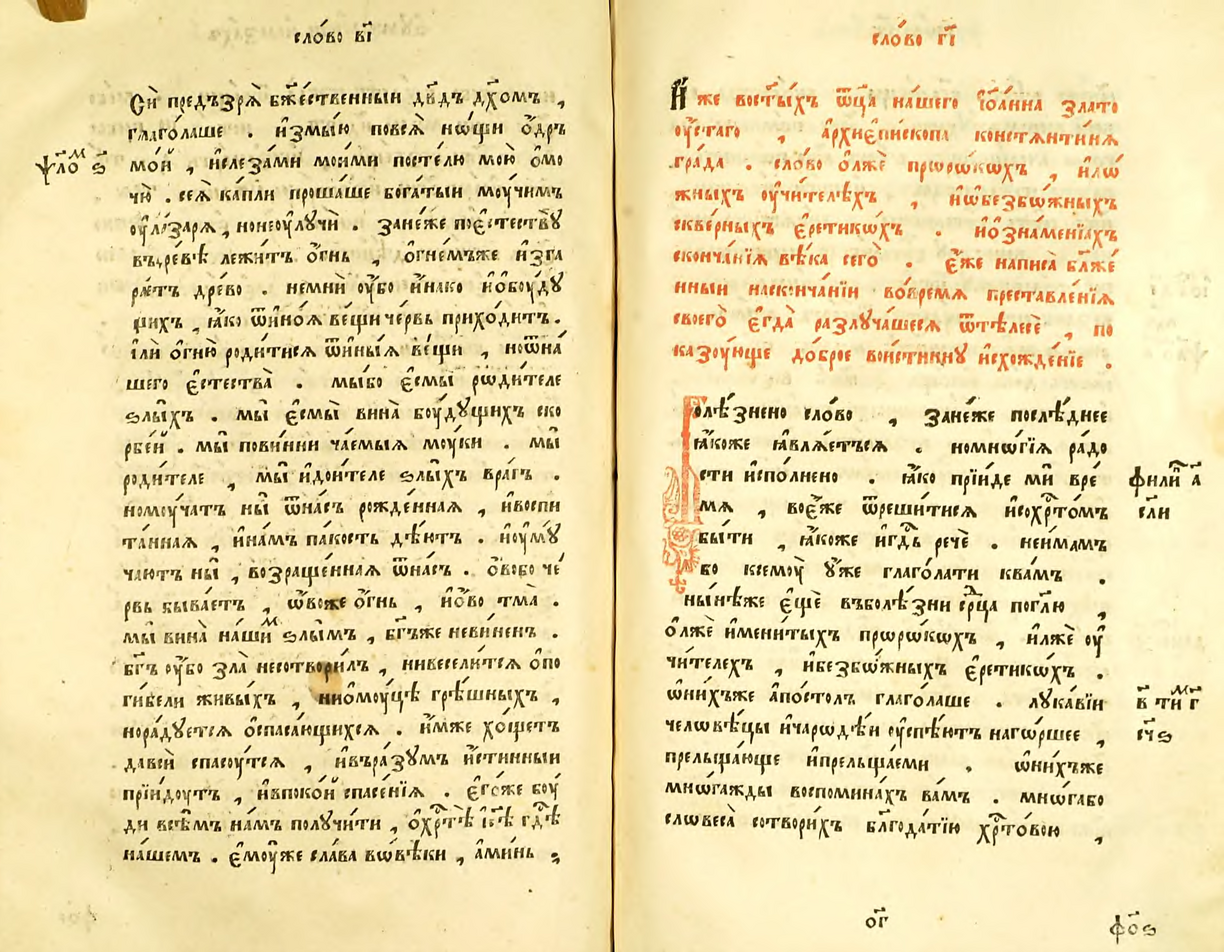 сло́во в҃і
Си̑ предъзрѧ̀ бж҃е́ственныи дв҃дъ дх҃омъ ,
глаго́лаше . и҆змы́ю повсѧ̀ но́щи о҆́дръ
мо́й , ислеза́ми мои́ми посте́лю мою̀ о҆мо
ѱало́м ѕ҃
чю̀ . сеѧ̀ ка́пли проша́ше бога́тыи моу́чимъ
занéже поєстествꙋ̀
въдре́вѣ лежи́тъ о҆́гнь , о҆гне́мъже и҆зга
рѧ́етъ дре́во . немни́ оу҆́бо и҆на́ко и҆обоу́дꙋ
щихъ , ꙗ҆́ко ѿи́ноѧ ве́щи че́рвь прихо́дитъ .
и҆лѝ о҆гню̀ роди́тисѧ ѿи́ныѧ ве́щи , ноѿна́
шего є҆стества̀ . мы́бо є҆смы̀ роди́теле
ѕлы́хъ . мы̀ є҆смы̀ вина̀ боу́дꙋщихъ ско
рбе́й . мы̀ пови́нни ча́емыѧ моу́ки . мы̀
роди́теле , мы̀ и҆дои́теле ѕлы́хъ вра́гъ .
номоу́чатъ ны̀ ѿна́съ рожде́ннаѧ , и҆воспи
та́ннаѧ , и҆на́мъ па́кость дѣ́ютъ . и҆оумꙋ
ча́ютъ ны̀ , возраще́ннаѧ ѿна́съ . о҆́вобо че́
рвь быва́етъ , ѡ҆́воже о҆́гнь , и҆о҆́во тма̀ .
мы̀ вина̀ на́шим ѕлы́мъ , бг҃ъже неви́ненъ .
бг҃ъ оу҆́бо зла̀ несотвори́лъ , нивесели́тсѧ о҆по
ги́бели живы́хъ , ниѡмоу́цѣ грѣ́шныхъ ,
нора́дꙋетсѧ о҆спаса́ющихсѧ . и҆́мже хо́щетъ
давсѝ спасоу́тсѧ , и҆въра́зꙋмъ и҆́стинныи
прїи́доутъ , и҆впоко́й спасе́нїѧ . є҆го́же боу́
ди всѣ́мъ на́мъ полꙋчи́ти , о҆хр҇тѣ̀ і҆с҃ѣ гд҇ѣ
на́шемъ . є҆моу́же сла́ва вовѣ́ки , а҆ми́нь ;
сло́во г҃і
И҆́же во ст҃ы́хъ ѿц҃а̀ на́шего і҆ѡа́нна злато
оу́стаго , а҆рхиєпи́скопа констѧнти́нѧ
гра́да . сло́во о҆лжѐ прⷪ҇ро́кохъ , и҆ло́
жныхъ оу҆чи́телѣхъ , и҆ѡбезбо́жныхъ
скве́рныхъ є҆ретико́хъ . и҆о҆зна́менїахъ
сконча́нїѧ вѣ́ка сего̀ . є҆́же написа̀ блаже́
нныи насконча́нїи во́времѧ преставле́нїѧ
своего̀ є҆гда̀ разлꙋча́шесѧ ѿтѣлесѐ , по
казоу́юще до́брое вои́стиннꙋ и҆схожде́нїе .
Болѣ́знено сло́во , зане́же послѣ́днее
ꙗ҆́коже ꙗ҆влѧ́етьсѧ . номно́гїѧ ра́до
сти и҆спо́лнено . ꙗ҆́ко прїи́де мѝ вре́
мѧ , воє҆́же ѿрѣши́тисѧ и҆сохр҇то́мъ
бы́ти , ꙗ҆́коже и҆гд҇ь речѐ . неи́мамъ
бо ксемоу̀ ꙋ҆жѐ глаго́лати ква́мъ .
ны́нѣже є҆щѐ въболѣ́зни ср҃ца погл҃ю ,
о҆лжѐ и҆мени́тыхъ прⷪ҇ро́кохъ , и҆лжѐ оу҆
чи́телехъ , и҆безбо́жныхъ є҆ретико́хъ .
ѡ҆ни́хъже а҆по́столъ глаго́лаше . лꙋка́вїи
человѣ́цы и҆чародѣ́и оу҆спѣ́ютъ наго́ршее ,
прельща́юще и҆прельща́еми . ѡ҆ни́хъже
многа́жды воспомина́хъ ва́мъ . мно́габо
словеса̀ сотвори́хъ бл҃года́тїю хр҇то́вою ,
фили́п а҃
с҃ли
в҃ тим г҃
с҃чѕ
ѻ҃г
ф҃оѕ